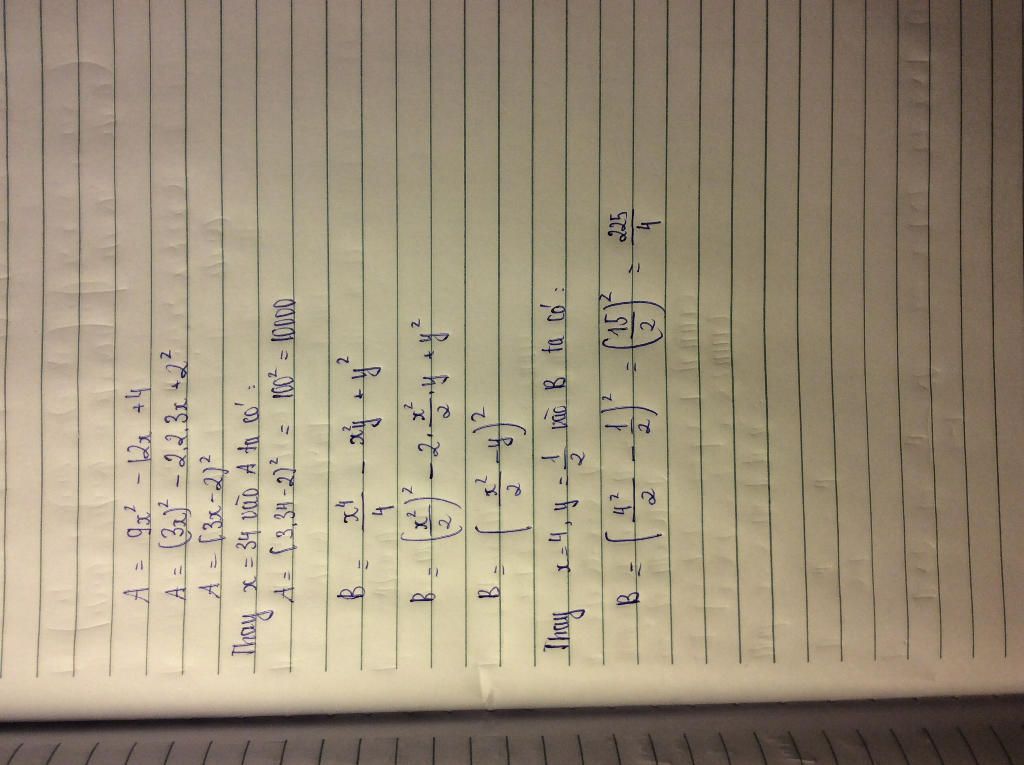 A = 9x² - 12x + 4
A = (3x)² - 2.2.3x + 2²
A = (3x - 2)²
Thay x = 34 vào A ta có:
A = (3.34 - 2)² = 100² = 10000
B = x⁴/4 - x²y + y²
B = (x²/2)² - 2.x²/2.y + y²
B = (x²/2 - y)²
Thay x = 4, y = 1/2 vào B ta có:
B = (4²/2 - 1/2)² = (15/2)² = 225/4